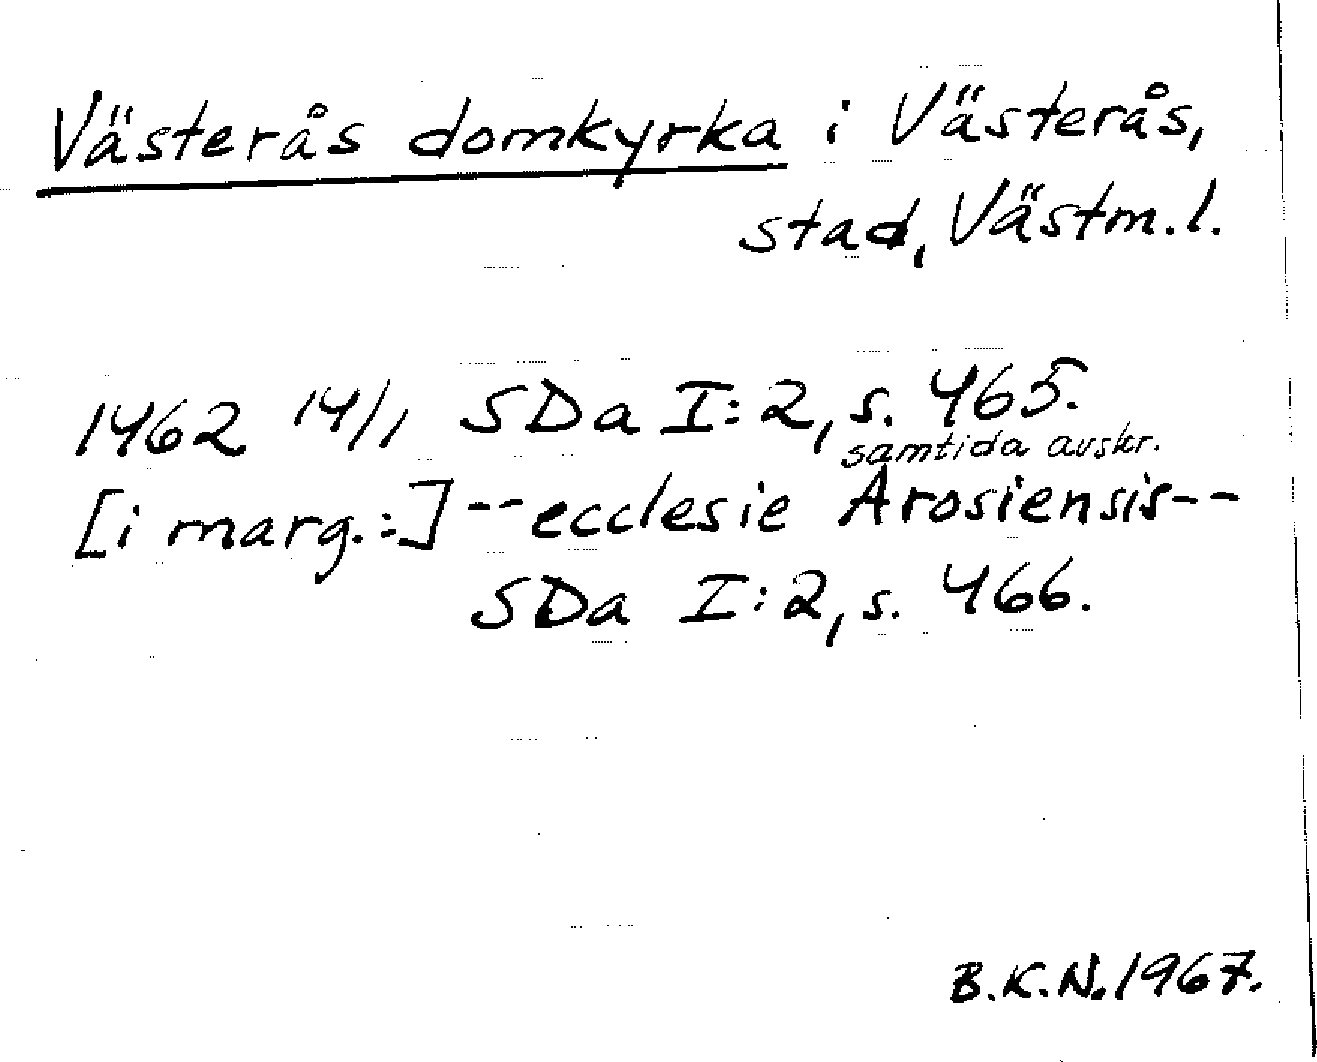 Västerås domkyrka i Västerås,
stad, Västm.l.
1462 14/1 SDa I:2, s. 465.
samtida avskr.
[i marg.:] -- ecclesie Arosiensis --
SDa I:2, s. 466.
B.K.N. 1967.